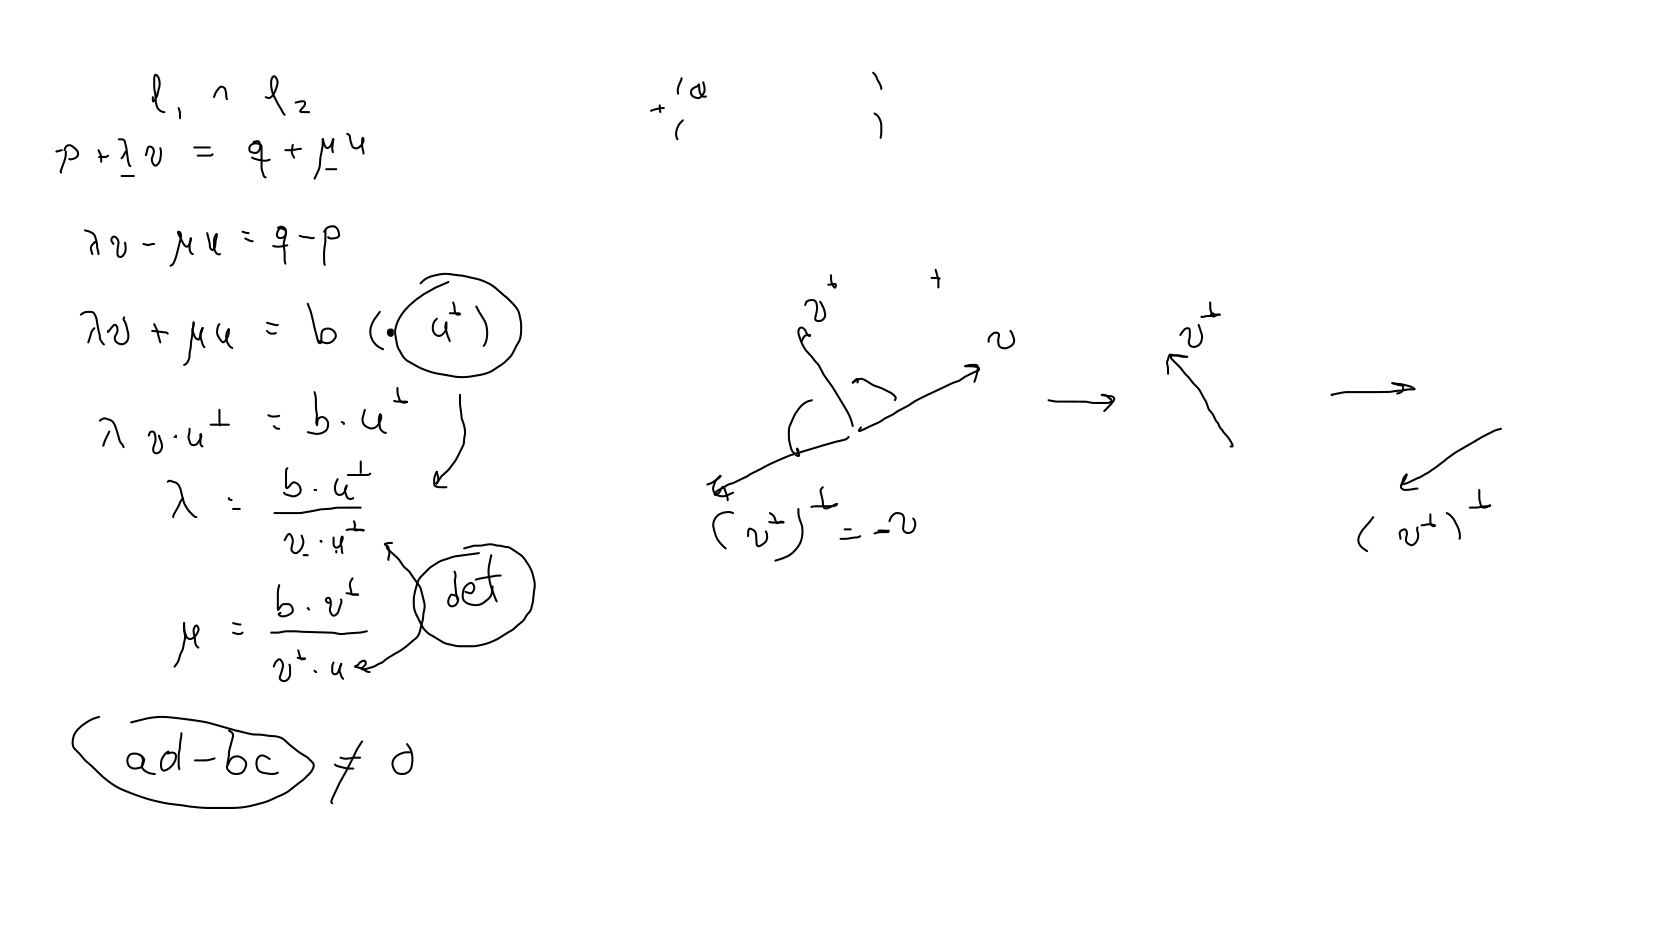 l₁ ∩ l₂
p + λv = q + μu
λv - μu = q - p
λv + μu = b (· u^⊥)
λ v · u^⊥ = b · u^⊥
λ = (b · u^⊥) / (v · u^⊥)
μ = (b · v^⊥) / (v^⊥ · u)
det
ad - bc ≠ 0
+ ( a )
( )
+
v^⊥
v
(v^⊥)^⊥ = -v
v^⊥
(v^⊥)^⊥